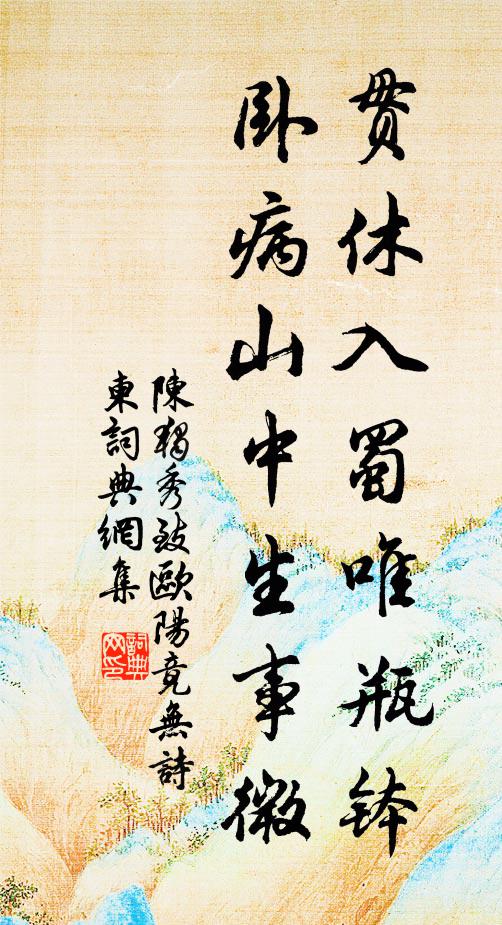 貫休入蜀唯瓶鉢
卧病山中生事微
陳獨秀致歐陽竟無詩
東詞典網集
詞典網印